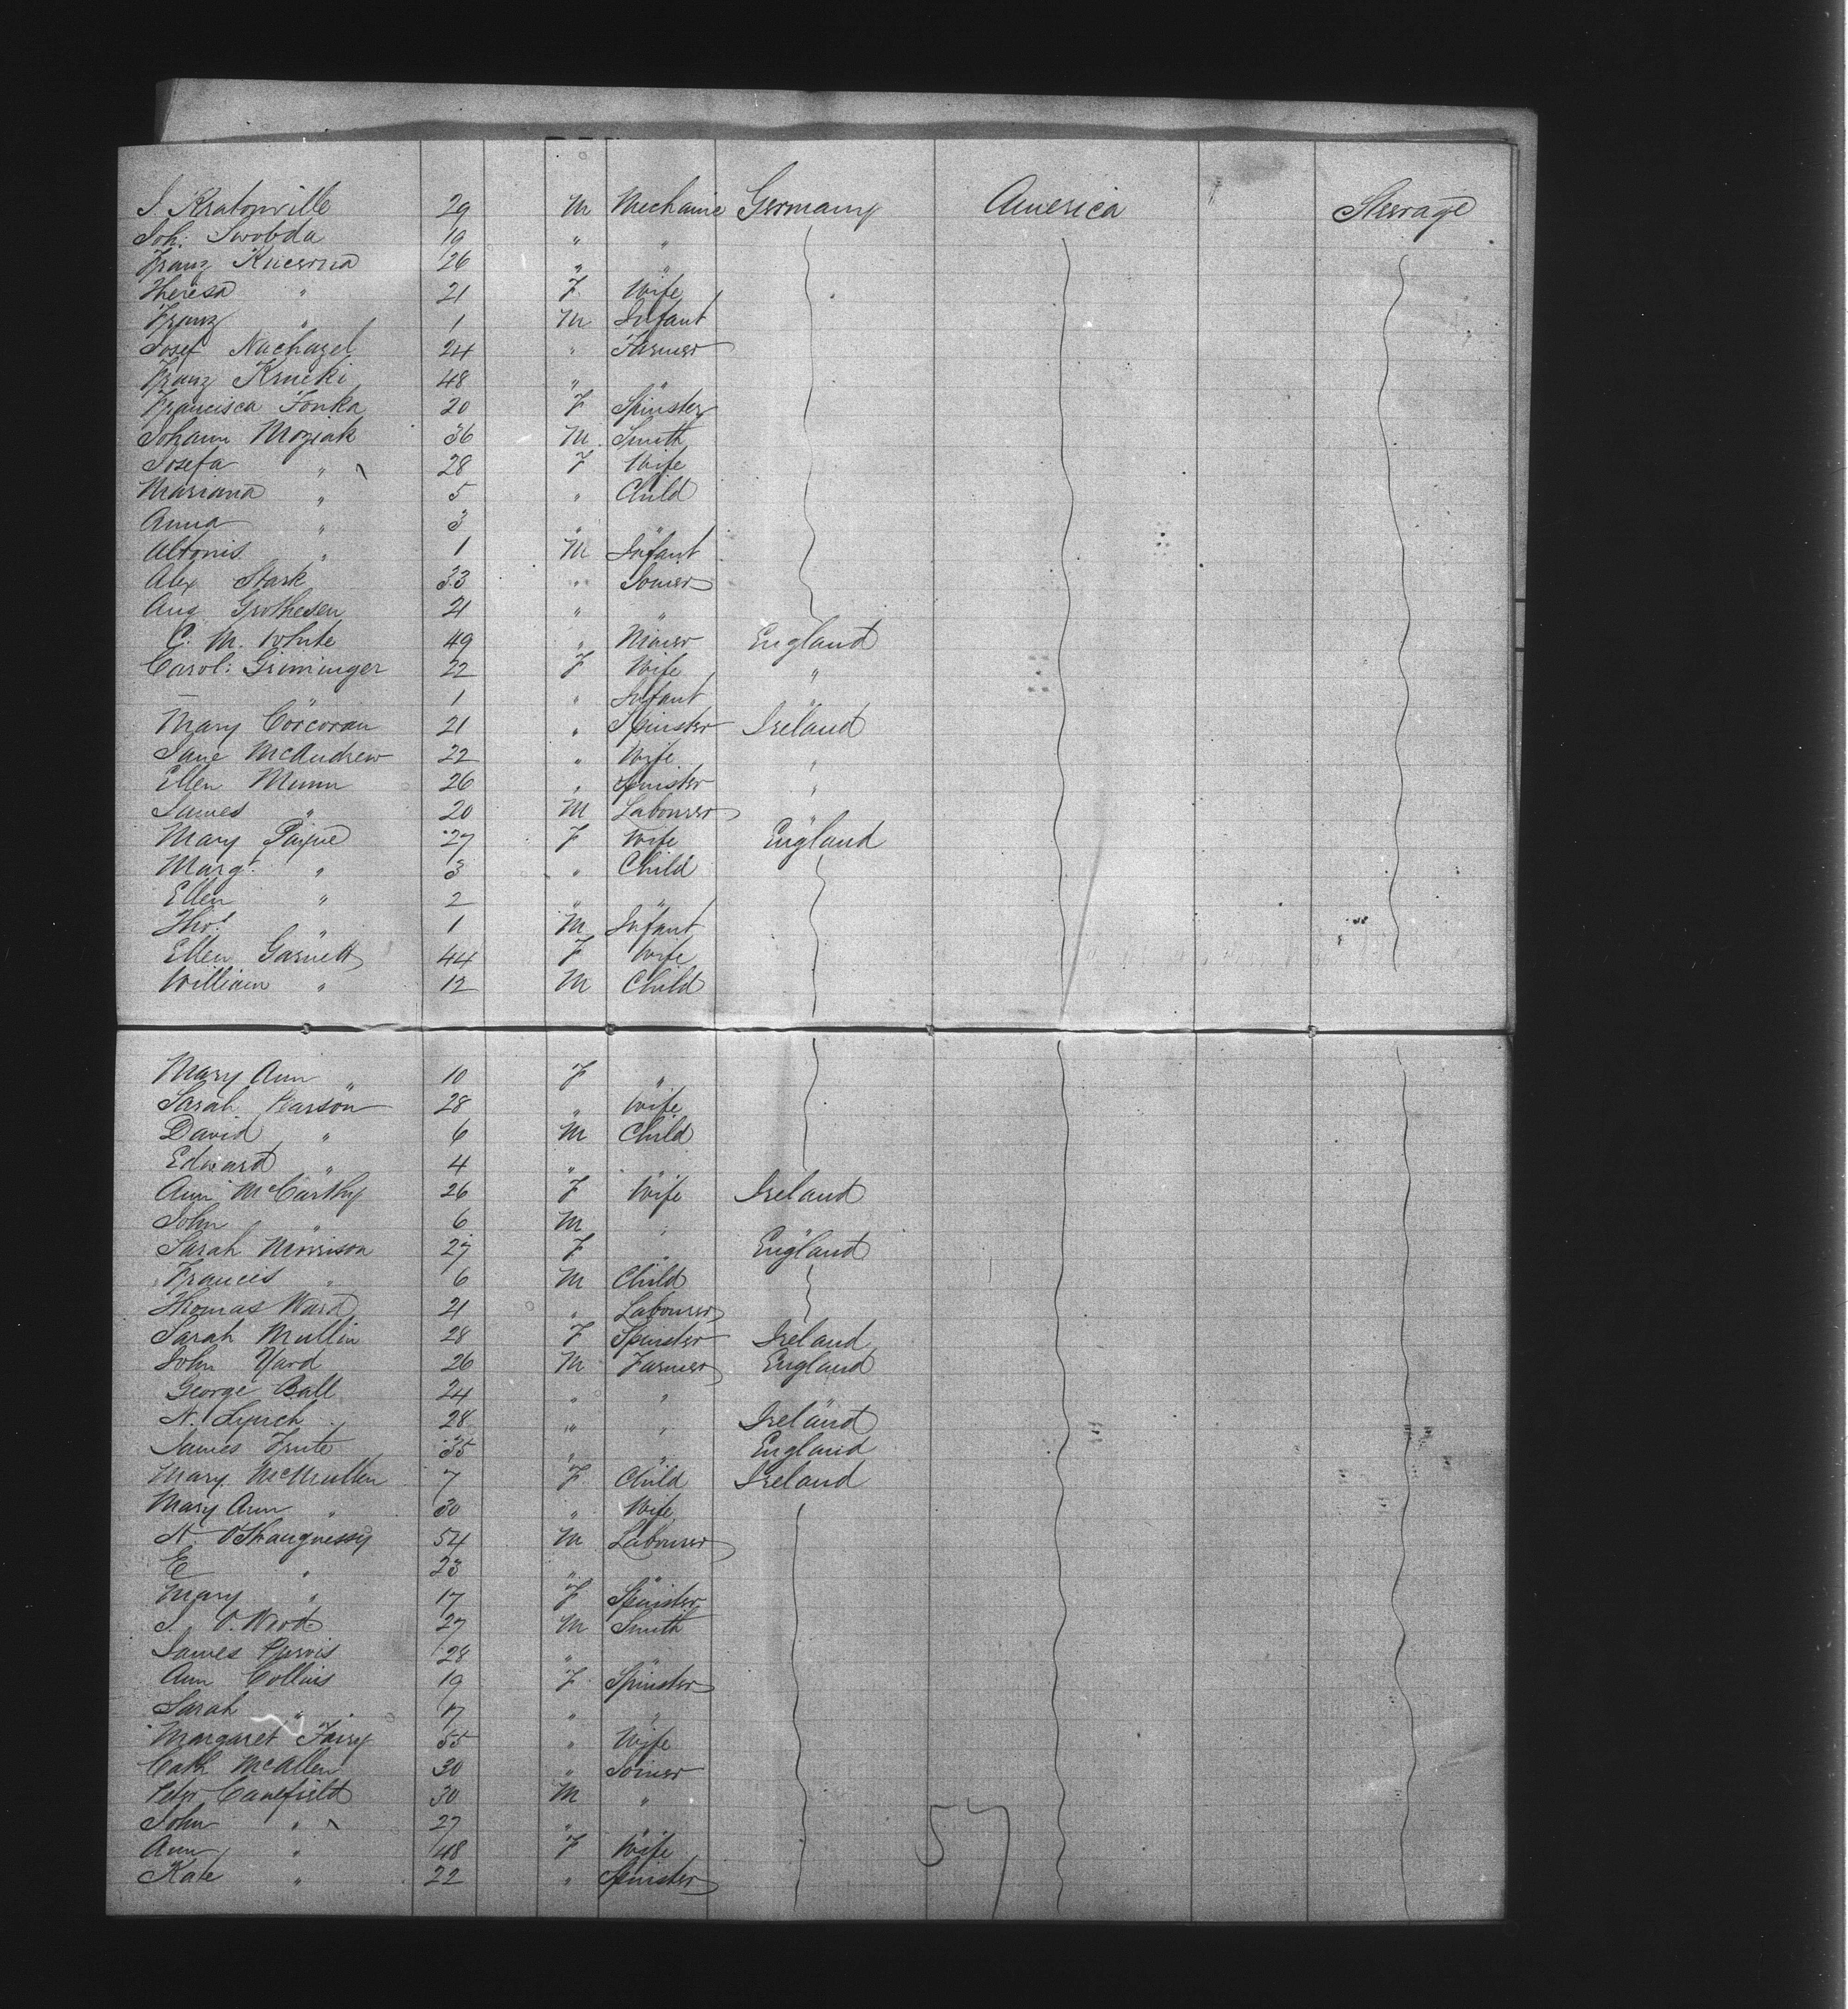 J. Kratonville 29 M Mechanic Germany America Steerage
Joh: Swobda 19 " "
Franz Kucerna 26 " "
Theresa " 21 F. Wife
Franz " 1 M Infant
Josef Nachazel 24 " Farmer
Franz Krucki 48 " "
Francisca Fonka 20 F Spinster
Johann Moziak 36 M Smith
Josefa " 28 F Wife
Mariana " 5 " Child
Anna " 3 " "
Altonis " 1 M Infant
Alex Stark 33 " Joiner
Aug Grothesen 21 " "
C. M. White 49 " Miner England
Carol: Griminger 22 F Wife "
— " 1 " Infant "
Mary Corcoran 21 " Spinster Ireland
Jane McAndrew 22 " Wife "
Ellen Munn 26 " Spinster "
James " 20 M Labourer "
Mary Payne 27 F Wife England
Margt. " 3 " Child
Ellen " 2 " "
Thos. " 1 M Infant
Ellen Garnett 44 F Wife
William " 12 M Child
Mary Ann " 10 F "
Sarah Pearson 28 " Wife
David " 6 M Child
Edward " 4 " "
Ann McCarthy 26 F Wife Ireland
John " 6 M " "
Sarah Morrison 27 F " England
Francis " 6 M Child
Thomas Ward 21 " Labourer
Sarah Mullin 28 F Spinster Ireland
John Yard 26 M Farmer England
George Ball 24 " " "
N. Lynch 28 " " Ireland
James Frute 35 " " England
Mary McMullen 7 F Child Ireland
Mary Ann " 30 " Wife
N. O'Shaugnessy 54 M Labourer
E " 23 " "
Mary " 17 F Spinster
J. O. Wood 27 M Smith
James Purvis 28 " "
Ann Collins 19 F Spinster
Sarah " 17 " "
Margaret Fairy 55 " Wife
Cath McAllen 30 " Joiner
Peter Canefield 30 M "
John " 27 " "
Ann " 48 F Wife
Kate " 22 " Spinster
57